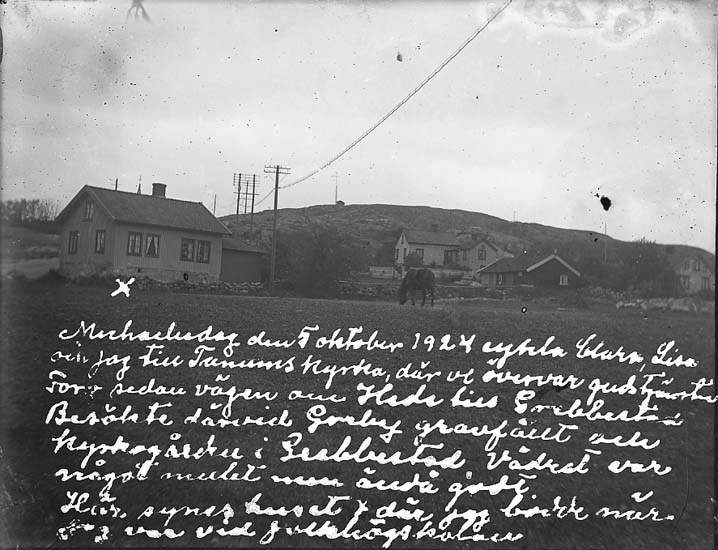 x
Michaelsdag den 5 oktober 1924 cykla Clara, Lisa
och jag till Tanums Kyrka, där vi övervar gudstjänsten
For sedan vägen om Hede till Grebbestad
Besökte därvid Greby gravfält och
Kyrkogården i Grebbestad. Vädret var
något mulet men ändå gott.
Här synes huset x där jag bodde när
jag var vid folkhögskolan